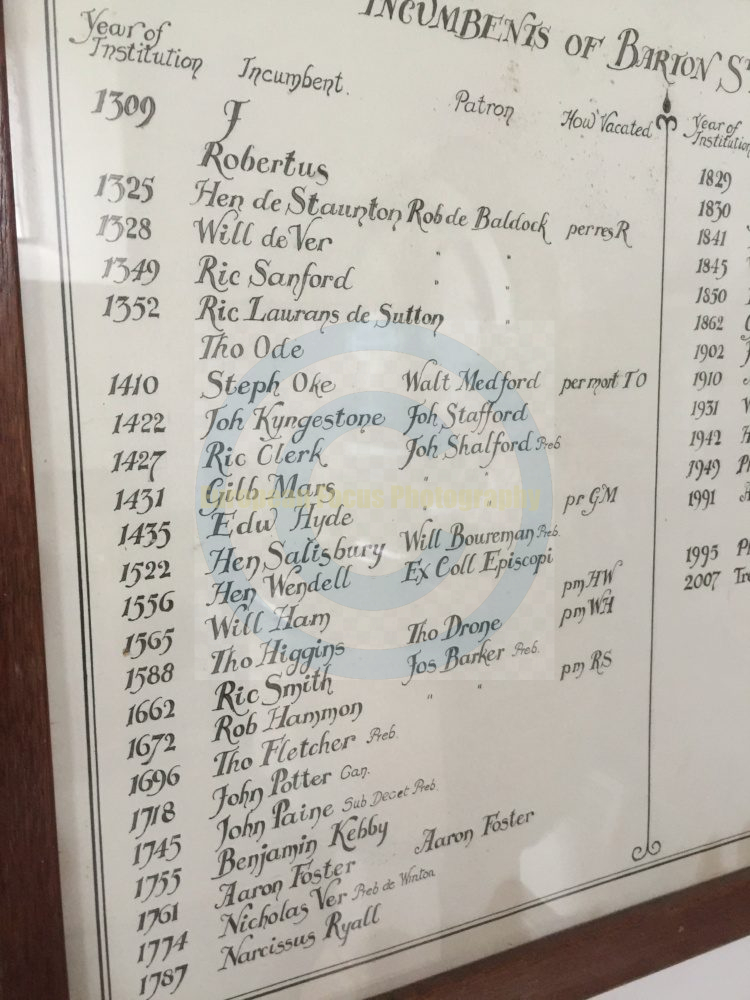 INCUMBENTS OF BARTON ST
Year of Institution Incumbent. Patron How Vacated
1309 J
Robertus
1325 Hen de Staunton Rob de Baldock per res R
1328 Will de Ver " "
1349 Ric Sanford " "
1352 Ric Laurans de Sutton "
Tho Ode
1410 Steph Oke Walt Medford per mort TO
1422 Joh Kyngestone Joh Stafford
1427 Ric Clerk Joh Shalford Preb
1431 Gilb Mars " "
1435 Edw Hyde " " pr GM
1522 Hen Salisbury Will Boureman Preb.
1556 Hen Wendell Ex Coll Episcopi
1565 Will Ham pm HW
1588 Tho Higgins Tho Drone pm WH
1662 Ric Smith Jos Barker Preb.
1672 Rob Hammon " " pm RS
1696 Tho Fletcher Preb.
1718 John Potter Can.
1745 John Paine Sub Decet Preb.
1755 Benjamin Kebby
1761 Aaron Foster Aaron Foster
1774 Nicholas Ver Preb de Winton
1787 Narcissus Ryall
Year of Institution
1829
1830
1841
1845
1850
1862
1902
1910
1931
1942
1949
1991
1995
2007